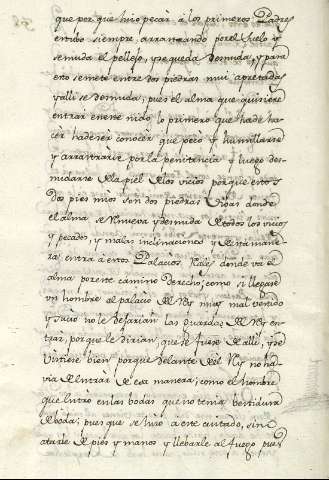 que por que hiso pecar á los primeros Padres
estubo siempre arrastrando por el suelo y
se muda el pellejo, y se queda desnuda, y para
esto se mete entre dos piedras mui apretadas
y alli se desnuda; pues el alma que quisiere
entrar en este nido lo primero que ha de ha
cer ha de ser conocer que pecó y humillarse
y arrastrarse por la penitencia y luego des
nudarse de la piel de los vicios porque estos
dos pies mios son dos piedras vivas donde
el alma se renueva y desnuda de todos los vicios
y pecados, y malas inclinaciones y de esta mane
ra entra a estos Palacios donde va el
alma por este camino derecho; como si llegase
un hombre al palacio del Rey mui mal vestido
y sucio no le dejarian las guardas del Rey en
trar, porque le dirian, que se fuese de alli, y se
vistiese bien porque delante del Rey no ha
via de entrar de esa manera; como el hombre
que entro en las bodas que no tenia vestidura
de bodas; pues que se hiso a este cuitado, sino
atarle de pies y manos y llevarle al fuego pues